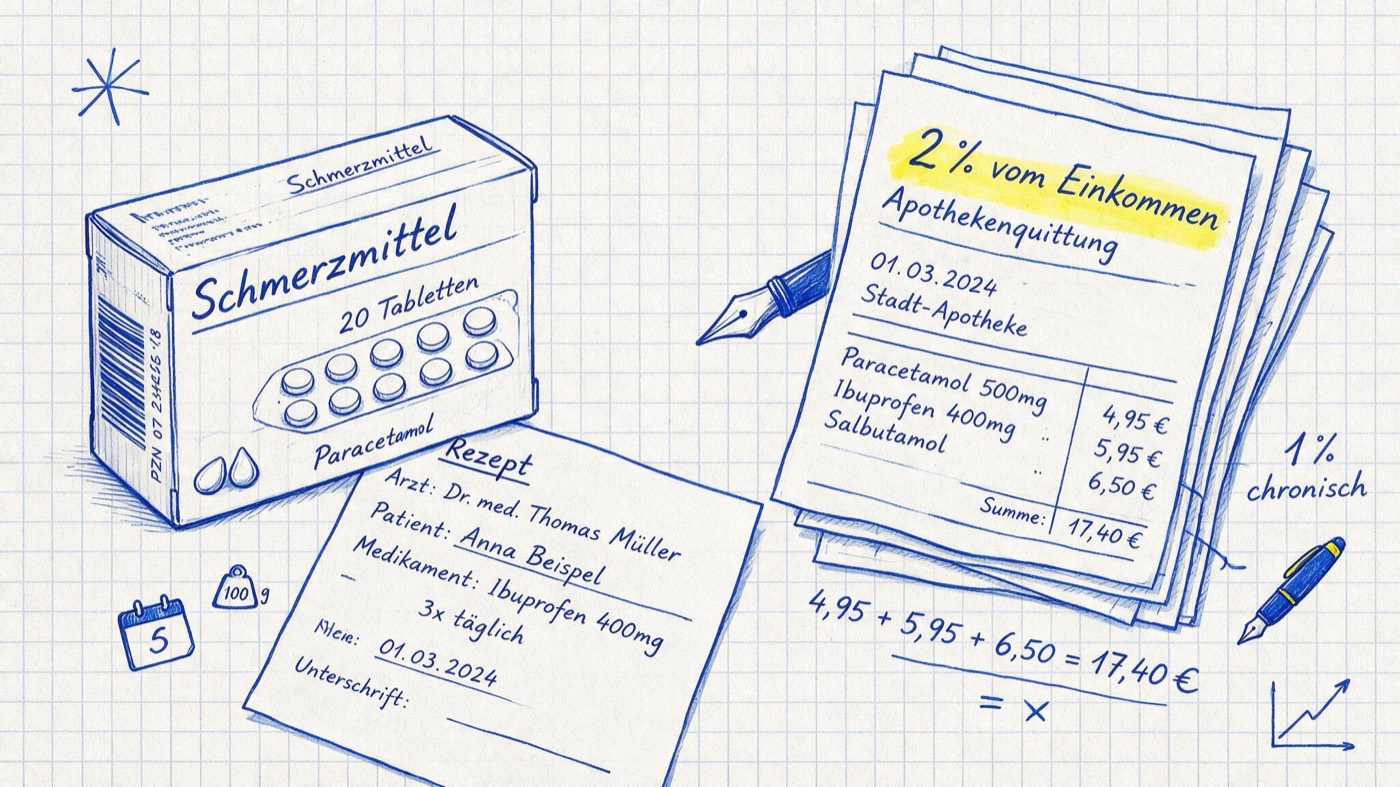 Schmerzmittel
Schmerzmittel
20 Tabletten
Paracetamol
Rezept
Arzt: Dr. med. Thomas Müller
Patient: Anna Beispel
Medikament: Ibuprofen 400mg
3x täglich
01.03.2024
Unterschrift:
100 g
5
2 % vom Einkommen
Apothekenquittung
01.03.2024
Stadt-Apotheke
Paracetamol 500mg 4,95 €
Ibuprofen 400mg 5,95 €
Salbutamol 6,50 €
Summe: 17,40 €
1 %
chronisch
4,95 + 5,95 + 6,50 = 17,40 €
= x